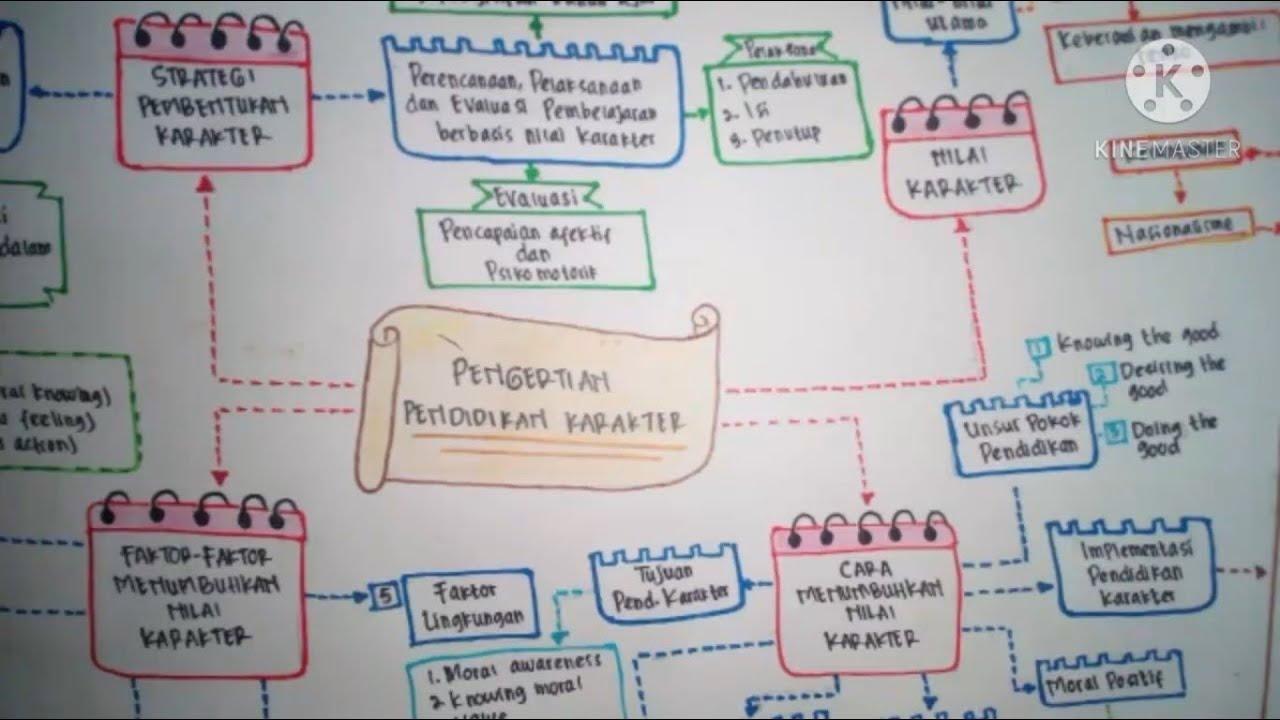 STRATEGI
PEMBENTUKAN
KARAKTER
Perencanaan, Pelaksanaan
dan Evaluasi Pembelajaran
berbasis nilai Karakter
1. Pendahuluan
2. Isi
3. Penutup
Evaluasi
Pencapaian afektif
dan
Psikomotorik
utama
NILAI
KARAKTER
KINEMASTER
Nasionalisme
dalam
knowing)
feeling)
action)
PENGERTIAN
PENDIDIKAN KARAKTER
Unsur Pokok
Pendidikan
1 Knowing the good
2 Desiring the
good
3 Doing the
good
FAKTOR-FAKTOR
MENUMBUHKAN
NILAI
KARAKTER
5 Faktor
Lingkungan
Tujuan
Pend. Karakter
1. Moral awareness
2 Knowing moral
CARA
MENUMBUHKAN
NILAI
KARAKTER
Implementasi
Pendidikan
Karakter
Moral Positif